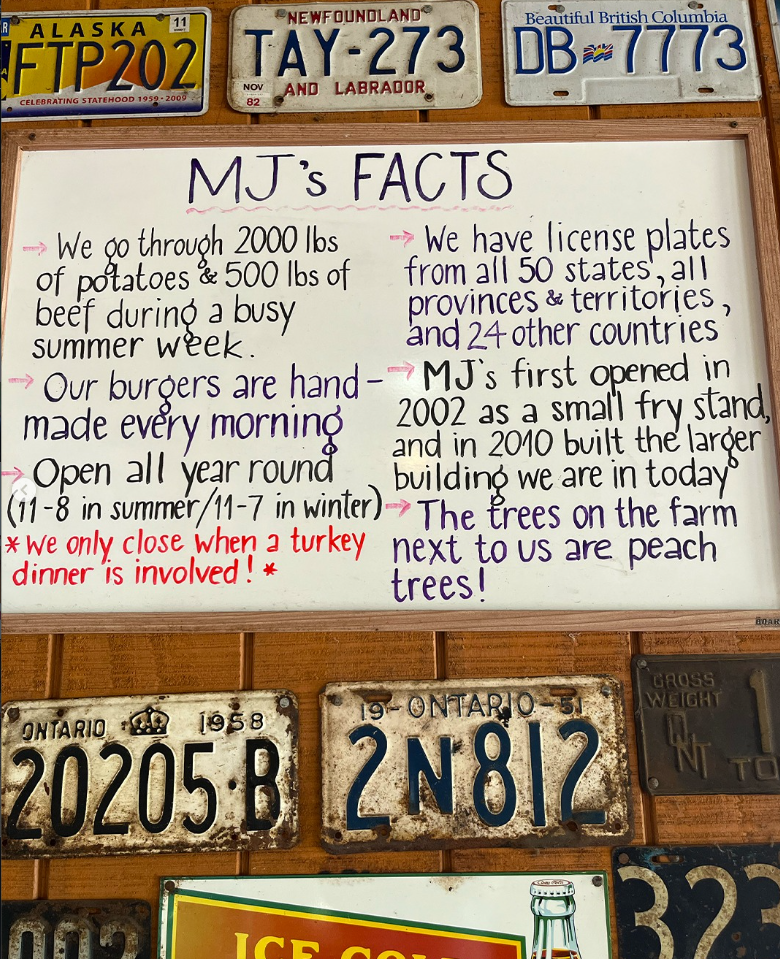 ALASKA
11
FTP202
CELEBRATING STATEHOOD 1959-2009
NEWFOUNDLAND
TAY-273
NOV
82
AND LABRADOR
Beautiful British Columbia
DB 7773
MJ's FACTS
→ We go through 2000 lbs
of potatoes & 500 lbs of
beef during a busy
summer week.
→ Our burgers are hand-
made every morning
→ Open all year round
(11-8 in summer/11-7 in winter)
*We only close when a turkey
dinner is involved! *
→ We have license plates
from all 50 states, all
provinces & territories,
and 24 other countries
→ MJ's first opened in
2002 as a small fry stand,
and in 2010 built the larger
building we are in today
→ The trees on the farm
next to us are peach
trees!
ONTARIO 1958
20205·B
19-ONTARIO-51
2N812
GROSS
WEIGHT 1
ONT TO
323
ICE COL